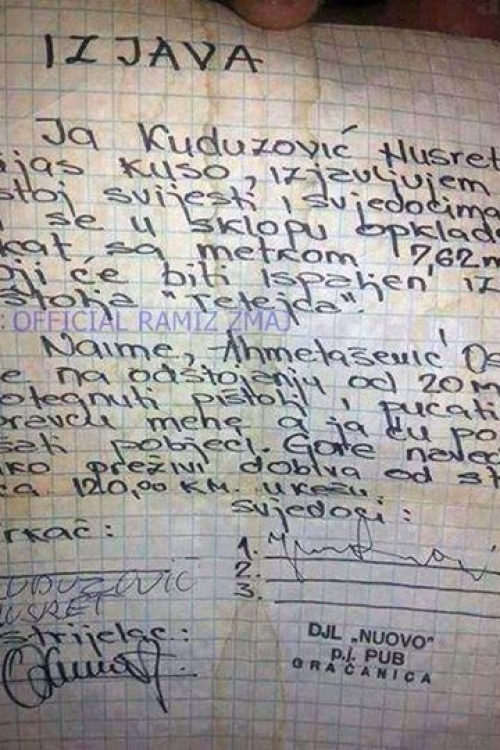 IZJAVA
Ja Kuduzović Husret
ijas Kuso, izjavljujem
stoj svijesti i svjedocima
se u sklopu opklade
kat sa metkom 7,62m
oji će biti ispaljen iz
štolja "Tetejca".
OFFICIAL RAMIZ ZMAJ
Naime, Ahmetašević Os
e na odstojanju od 20 m
otegnuti pištolj i pucati
pravcu mene a ja ću po
šati pobjeći. Gore naved
ko preživi dobiva od st
ca 120,00 KM u kešu.
svjedoci:
rkač:
1.
2.
KUDUZOVIĆ
HUSRET
3.
strijelac:
DJL „NUOVO"
p.j. PUB
GRAČANICA